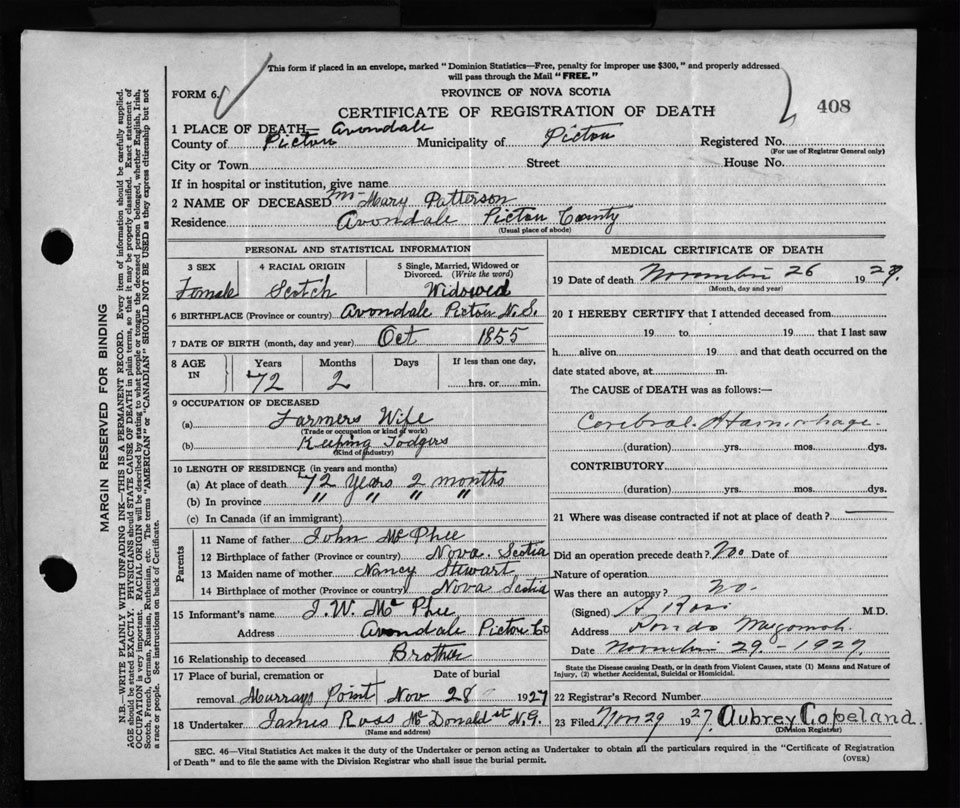 This form if placed in an envelope, marked "Dominion Statistics—Free, penalty for improper use $300," and properly addressed
will pass through the Mail "FREE."
FORM 6.
PROVINCE OF NOVA SCOTIA
CERTIFICATE OF REGISTRATION OF DEATH
408
1 PLACE OF DEATH Avondale
County of Pictou Municipality of Pictou Registered No.
(For use of Registrar General only)
City or Town Street House No.
If in hospital or institution, give name
2 NAME OF DECEASED Mrs Mary Patterson
Residence Avondale Pictou County
(Usual place of abode)
PERSONAL AND STATISTICAL INFORMATION
3 SEX 4 RACIAL ORIGIN 5 Single, Married, Widowed or
Divorced. (Write the word)
Female Scotch Widowed
6 BIRTHPLACE (Province or country) Avondale Pictou N.S.
7 DATE OF BIRTH (month, day and year) Oct 1855
8 AGE IN Years Months Days If less than one day,
72 2 hrs. or min.
9 OCCUPATION OF DECEASED
(a) Farmers Wife
(Trade or occupation or kind of work)
(b) Keeping Lodgers
(Kind of industry)
10 LENGTH OF RESIDENCE (in years and months)
(a) At place of death 72 Years 2 months
(b) In province " " " "
(c) In Canada (if an immigrant)
Parents
11 Name of father John McPhee
12 Birthplace of father (Province or country) Nova Scotia
13 Maiden name of mother Nancy Stewart
14 Birthplace of mother (Province or country) Nova Scotia
15 Informant's name J. W. McPhee
Address Avondale Pictou Co
16 Relationship to deceased Brother
17 Place of burial, cremation or Date of burial
removal Murrays Point Nov 28 1927
18 Undertaker James Ross McDonald st N.G.
(Name and address)
MEDICAL CERTIFICATE OF DEATH
19 Date of death November 26 1927.
(Month, day and year)
20 I HEREBY CERTIFY that I attended deceased from
19 to 19 that I last saw
h alive on 19 and that death occurred on the
date stated above, at m.
The CAUSE of DEATH was as follows:—
Cerebral Haemorhage.
(duration) yrs. mos. dys.
CONTRIBUTORY
(duration) yrs. mos. dys.
21 Where was disease contracted if not at place of death?
Did an operation precede death? No Date of
Nature of operation
Was there an autopsy? No.
(Signed) M.D.
Address
Date November 29.-1927
State the Disease causing Death, or in death from Violent Causes, state (1) Means and Nature of
Injury, (2) whether Accidental, Suicidal or Homicidal.
22 Registrar's Record Number
23 Filed Nov 29 1927. Aubrey Copeland.
(Division Registrar)
SEC. 46—Vital Statistics Act makes it the duty of the Undertaker or person acting as Undertaker to obtain all the particulars required in the "Certificate of Registration
of Death" and to file the same with the Division Registrar who shall issue the burial permit.
(OVER)
MARGIN RESERVED FOR BINDING
N.B.—WRITE PLAINLY WITH UNFADING INK—THIS IS A PERMANENT RECORD. Every item of information should be carefully supplied.
AGE should be stated EXACTLY. PHYSICIANS should STATE CAUSE OF DEATH in plain terms, so that it may be properly classified. Exact statement of
OCCUPATION is very important. RACIAL ORIGIN will be described by stating to what people or tongue the deceased person belonged, whether English, Irish,
Scotch, French, German, Russian, Ruthenian, etc. The terms "AMERICAN" or "CANADIAN" SHOULD NOT BE USED as they express citizenship but not
a race or people. See instructions on back of Certificate.